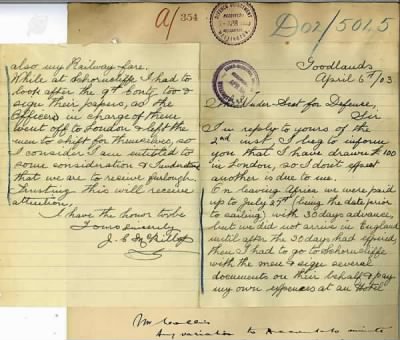 a/ 354
D02/5015
Goodlands
April 6th/03
The Under Sect for Defence,
Sir
In reply to yours of the
2nd inst I beg to inform
you that I have drawn £100
in London, so I don't expect
another is due to me.
On leaving Africa we were paid
up to July 27th (being the date prior
to sailing) with 30 days advance,
but we did not arrive in England
until after the 30 days had expired,
then I had to go to Schorncliffe
with the men & sign several
documents on their behalf & pay
my own expences at an Hotel
also my Railway fare.
While at Schorncliffe I had to
look after the 9th Conty too &
sign their papers, as the
Officers in charge of them
went off to London & left the
men to shift for themselves, so
I consider I am entitled to
some consideration &
that we are to receive furlough.
Trusting this will receive
attention,
I have the honor to be
Yours sincerely
J. E. McKillop
Mr
Any variation to minute